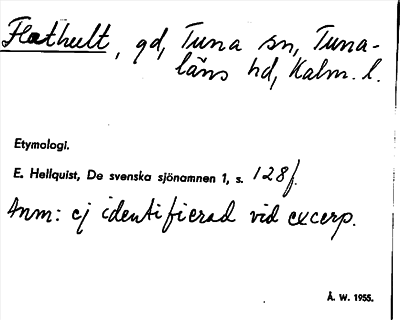 Flathult, gd, Tuna sn, Tuna-
läns hd, Kalm. l.
Etymologi.
E. Hellquist, De svenska sjönamnen 1, s. 128f.
Anm: ej identifierad vid excerp.
Å. W. 1955.